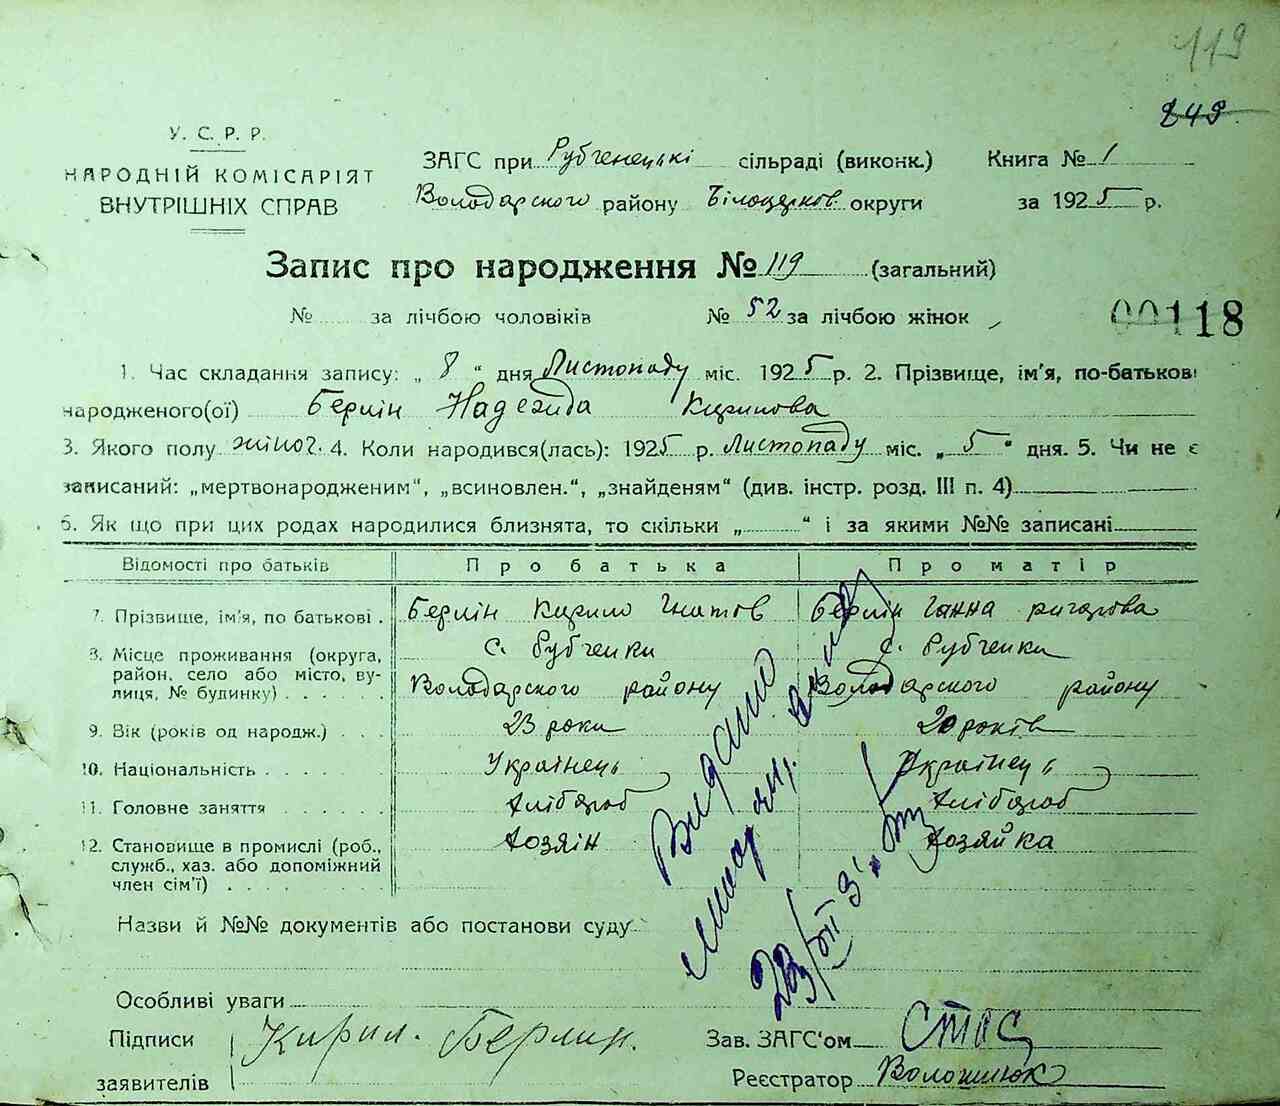 119
249
У. С. Р. Р.
НАРОДНІЙ КОМІСАРІЯТ
ВНУТРІШНІХ СПРАВ
ЗАГС при Рубченецькі сільраді (виконк.) Книга № 1
Володарского району Білоцерков округи за 1925 р.
Запис про народження № 119 (загальний)
№ за лічбою чоловіків № 52 за лічбою жінок
00118
1. Час складання запису: „ 8 “ дня Листопаду міс. 1925 р. 2. Прізвище, ім'я, по-батькові
народженого(ої) Берлін Надежда Кирилова
3. Якого полу жіноч. 4. Коли народився(лась): 1925 р. Листопаду міс. „ 5 “ дня. 5. Чи не є
записаний: „мертвонародженим“, „всиновлен.“, „знайденям“ (див. інстр. розд. III п. 4)
6. Як що при цих родах народилися близнята, то скільки „ “ і за якими №№ записані
Відомості про батьків Про батька Про матір
7. Прізвище, ім'я, по батькові . Берлін Кирило Гнатов Берлін Ганна
8. Місце проживання (округа, с. Рубченки с. Рубченки
район, село або місто, ву-
лиця, № будинку) . . . . . Володарского району Володарского району
9. Вік (років од народж.) . . . 23 роки 20 років
10. Національність . . . . . . Українець Українець
11. Головне заняття . . . . Хлібороб Хлібороб
12. Становище в промислі (роб., Хозяін Хозяйка
служб., хаз. або допоміжний
член сім'ї) . . . . . . . .
Видано
23/VII 3
Назви й №№ документів або постанови суду
Особливі уваги
Підписи Кирил. Берлин. Зав. ЗАГС'ом
заявителів Реєстратор Волошнюк